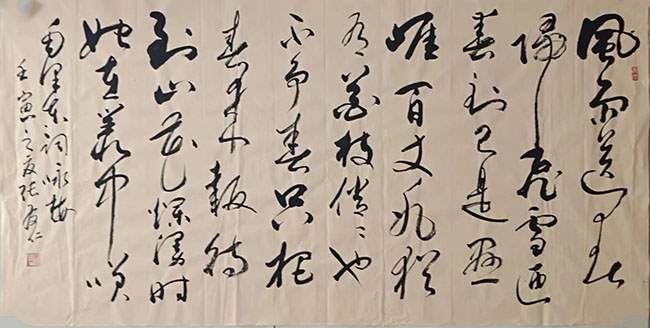 風雨送春
歸飛雪迎
春到已是懸
崖百丈冰猶
有花枝俏俏也
不爭春只把
春來報待
到山花爛漫時
她在叢中笑
毛澤東詞咏梅
壬寅之夏張